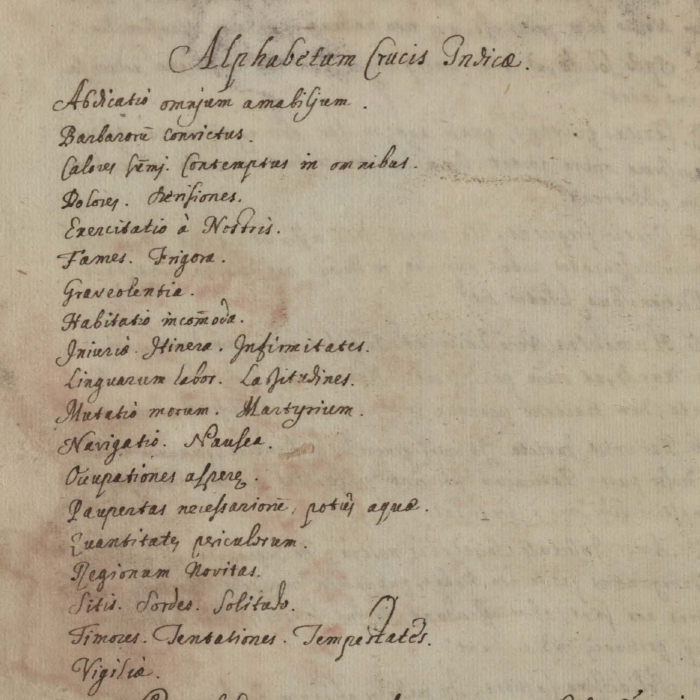 Alphabetum Crucis Indicæ.
Abdicatio omnjum amabiljum.
Barbarorū convictus.
Calores sūmj. Contemptus in omnibus.
Dolores. Derisiones.
Exercitatio à Nostris.
Fames. Frigora.
Graveolentia.
Habitatio incom̄oda.
Iniuriæ. Itinera. Infirmitates.
Linguarum labor. Laſsitudines.
Mutatio morum. Martyrium.
Navigatio. Nausea.
Occupationes asperę.
Paupertas neceſsariorū, potus aquæ.
Quantitates periculorum.
Regionum Novitas.
Sitis. Sordes. Solitudo.
Timores. Tentationes. Tempestates.
Vigiliæ.